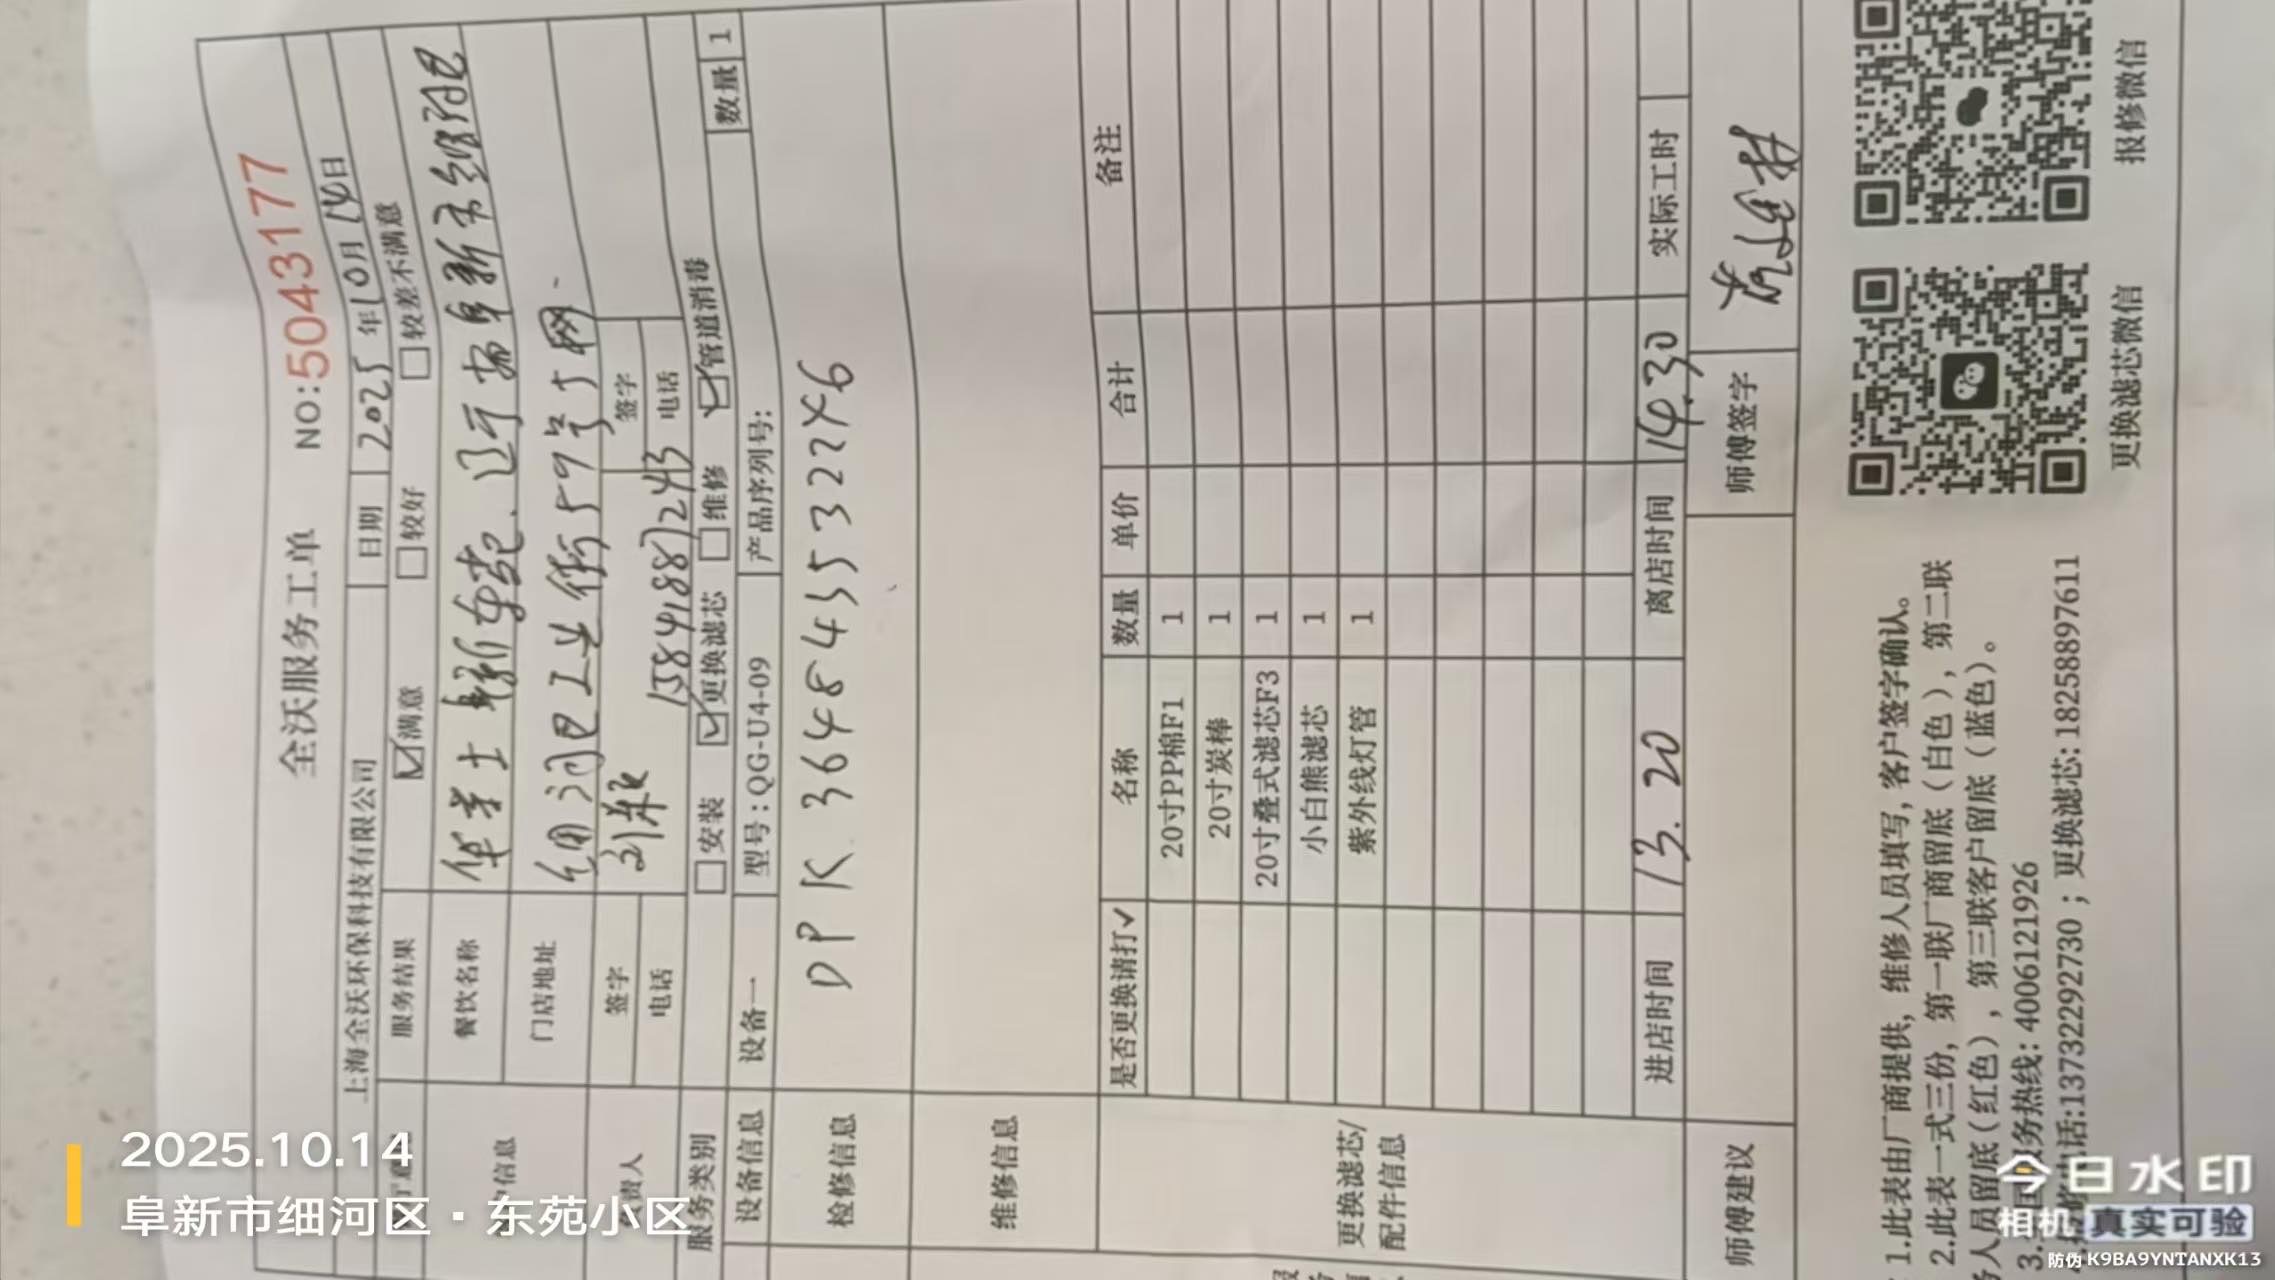 全沃服务工单 NO:5043177
上海全沃环保科技有限公司 日期 2025年10月14日
服务结果 ☑满意 □较好 □较差不满意
餐饮名称 华莱士阜新东苑.辽宁省阜新市细河区
门店地址 细河区工业街59号1网
签字 签字
电话 15841887243 电话
服务类别 □安装 ☑更换滤芯 □维修 ☑管道消毒
设备信息 设备一 型号:QG-U4-09 产品序列号: 数量 1
检修信息 DPK 3648435322Y6
维修信息
更换滤芯/
配件信息
是否更换请打✓ 名称 数量 单价 合计 备注
20寸PP棉F1 1
20寸炭棒 1
20寸叠式滤芯F3 1
小白熊滤芯 1
紫外线灯管 1
进店时间 13.20 离店时间 14.30 实际工时
师傅建议 师傅签字
1.此表由厂商提供,维修人员填写,客户签字确认。
2.此表一式三份,第一联厂商留底(白色),第二联
务人员留底(红色),第三联客户留底(蓝色)。
3. 务热线:4006121926
电话:13732292730;更换滤芯:18258897611
更换滤芯微信 报修微信
2025.10.14
阜新市细河区·东苑小区
今日水印
相机 真实可验
防伪 K9BA9YNTANXK13